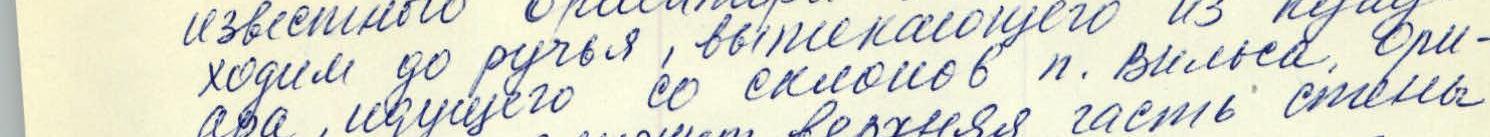 известного ориентира из
ходим до ручья, вытекающего из кулу-
ара, идущего со склонов п. Вильса. Ори-
верхняя часть стены